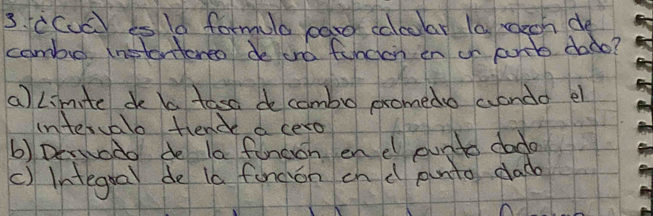 3. ¿Cuál es la formula para calcular la razón de
cambio instantaneo de una función en un punto dado?
a) Límite de la tasa de cambio promedio cuando el
intervalo tiende a cero
b) Derivada de la función en el punto dado
c) Integral de la función en el punto dado